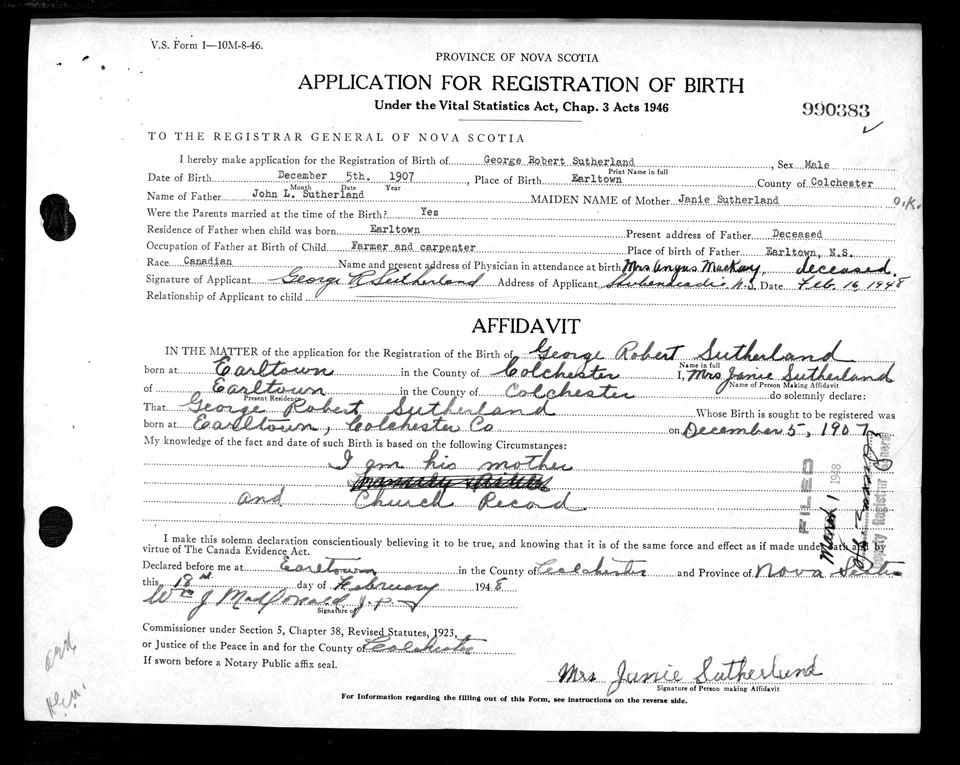 V.S. Form 1—10M-8-46.
PROVINCE OF NOVA SCOTIA
APPLICATION FOR REGISTRATION OF BIRTH
Under the Vital Statistics Act, Chap. 3 Acts 1946
990383
TO THE REGISTRAR GENERAL OF NOVA SCOTIA
I hereby make application for the Registration of Birth of George Robert Sutherland, Sex Male
Print Name in full
Date of Birth December 5th. 1907, Place of Birth Earltown County of Colchester
Month Date Year
Name of Father John L. Sutherland MAIDEN NAME of Mother Janie Sutherland O.K.
Were the Parents married at the time of the Birth? Yes
Residence of Father when child was born Earltown Present address of Father Deceased
Occupation of Father at Birth of Child Farmer and carpenter Place of birth of Father Earltown, N.S.
Race Canadian Name and present address of Physician in attendance at birth Mrs Angus MacKay, deceased.
Signature of Applicant George R Sutherland Address of Applicant Shubenacadie N.S. Date Feb. 16, 1948
Relationship of Applicant to child
AFFIDAVIT
IN THE MATTER of the application for the Registration of the Birth of George Robert Sutherland
Name in full
born at Earltown in the County of Colchester I, Mrs Janie Sutherland
Name of Person Making Affidavit
of Earltown in the County of Colchester do solemnly declare:
Present Residence
That George Robert Sutherland Whose Birth is sought to be registered was
born at Earltown, Colchester Co on December 5, 1907
My knowledge of the fact and date of such Birth is based on the following Circumstances:
I am his mother
and Church Record
FILED
March 1 1948
Deputy Registrar General
I make this solemn declaration conscientiously believing it to be true, and knowing that it is of the same force and effect as if made under oath and by
virtue of The Canada Evidence Act.
Declared before me at Earltown in the County of Colchester and Province of Nova Scotia
this 18 day of February 1948
Wm J MacDonald J.P.
Signature of
Commissioner under Section 5, Chapter 38, Revised Statutes, 1923,
or Justice of the Peace in and for the County of Colchester
If sworn before a Notary Public affix seal.
Mrs Janie Sutherland
Signature of Person making Affidavit
For Information regarding the filling out of this Form, see instructions on the reverse side.